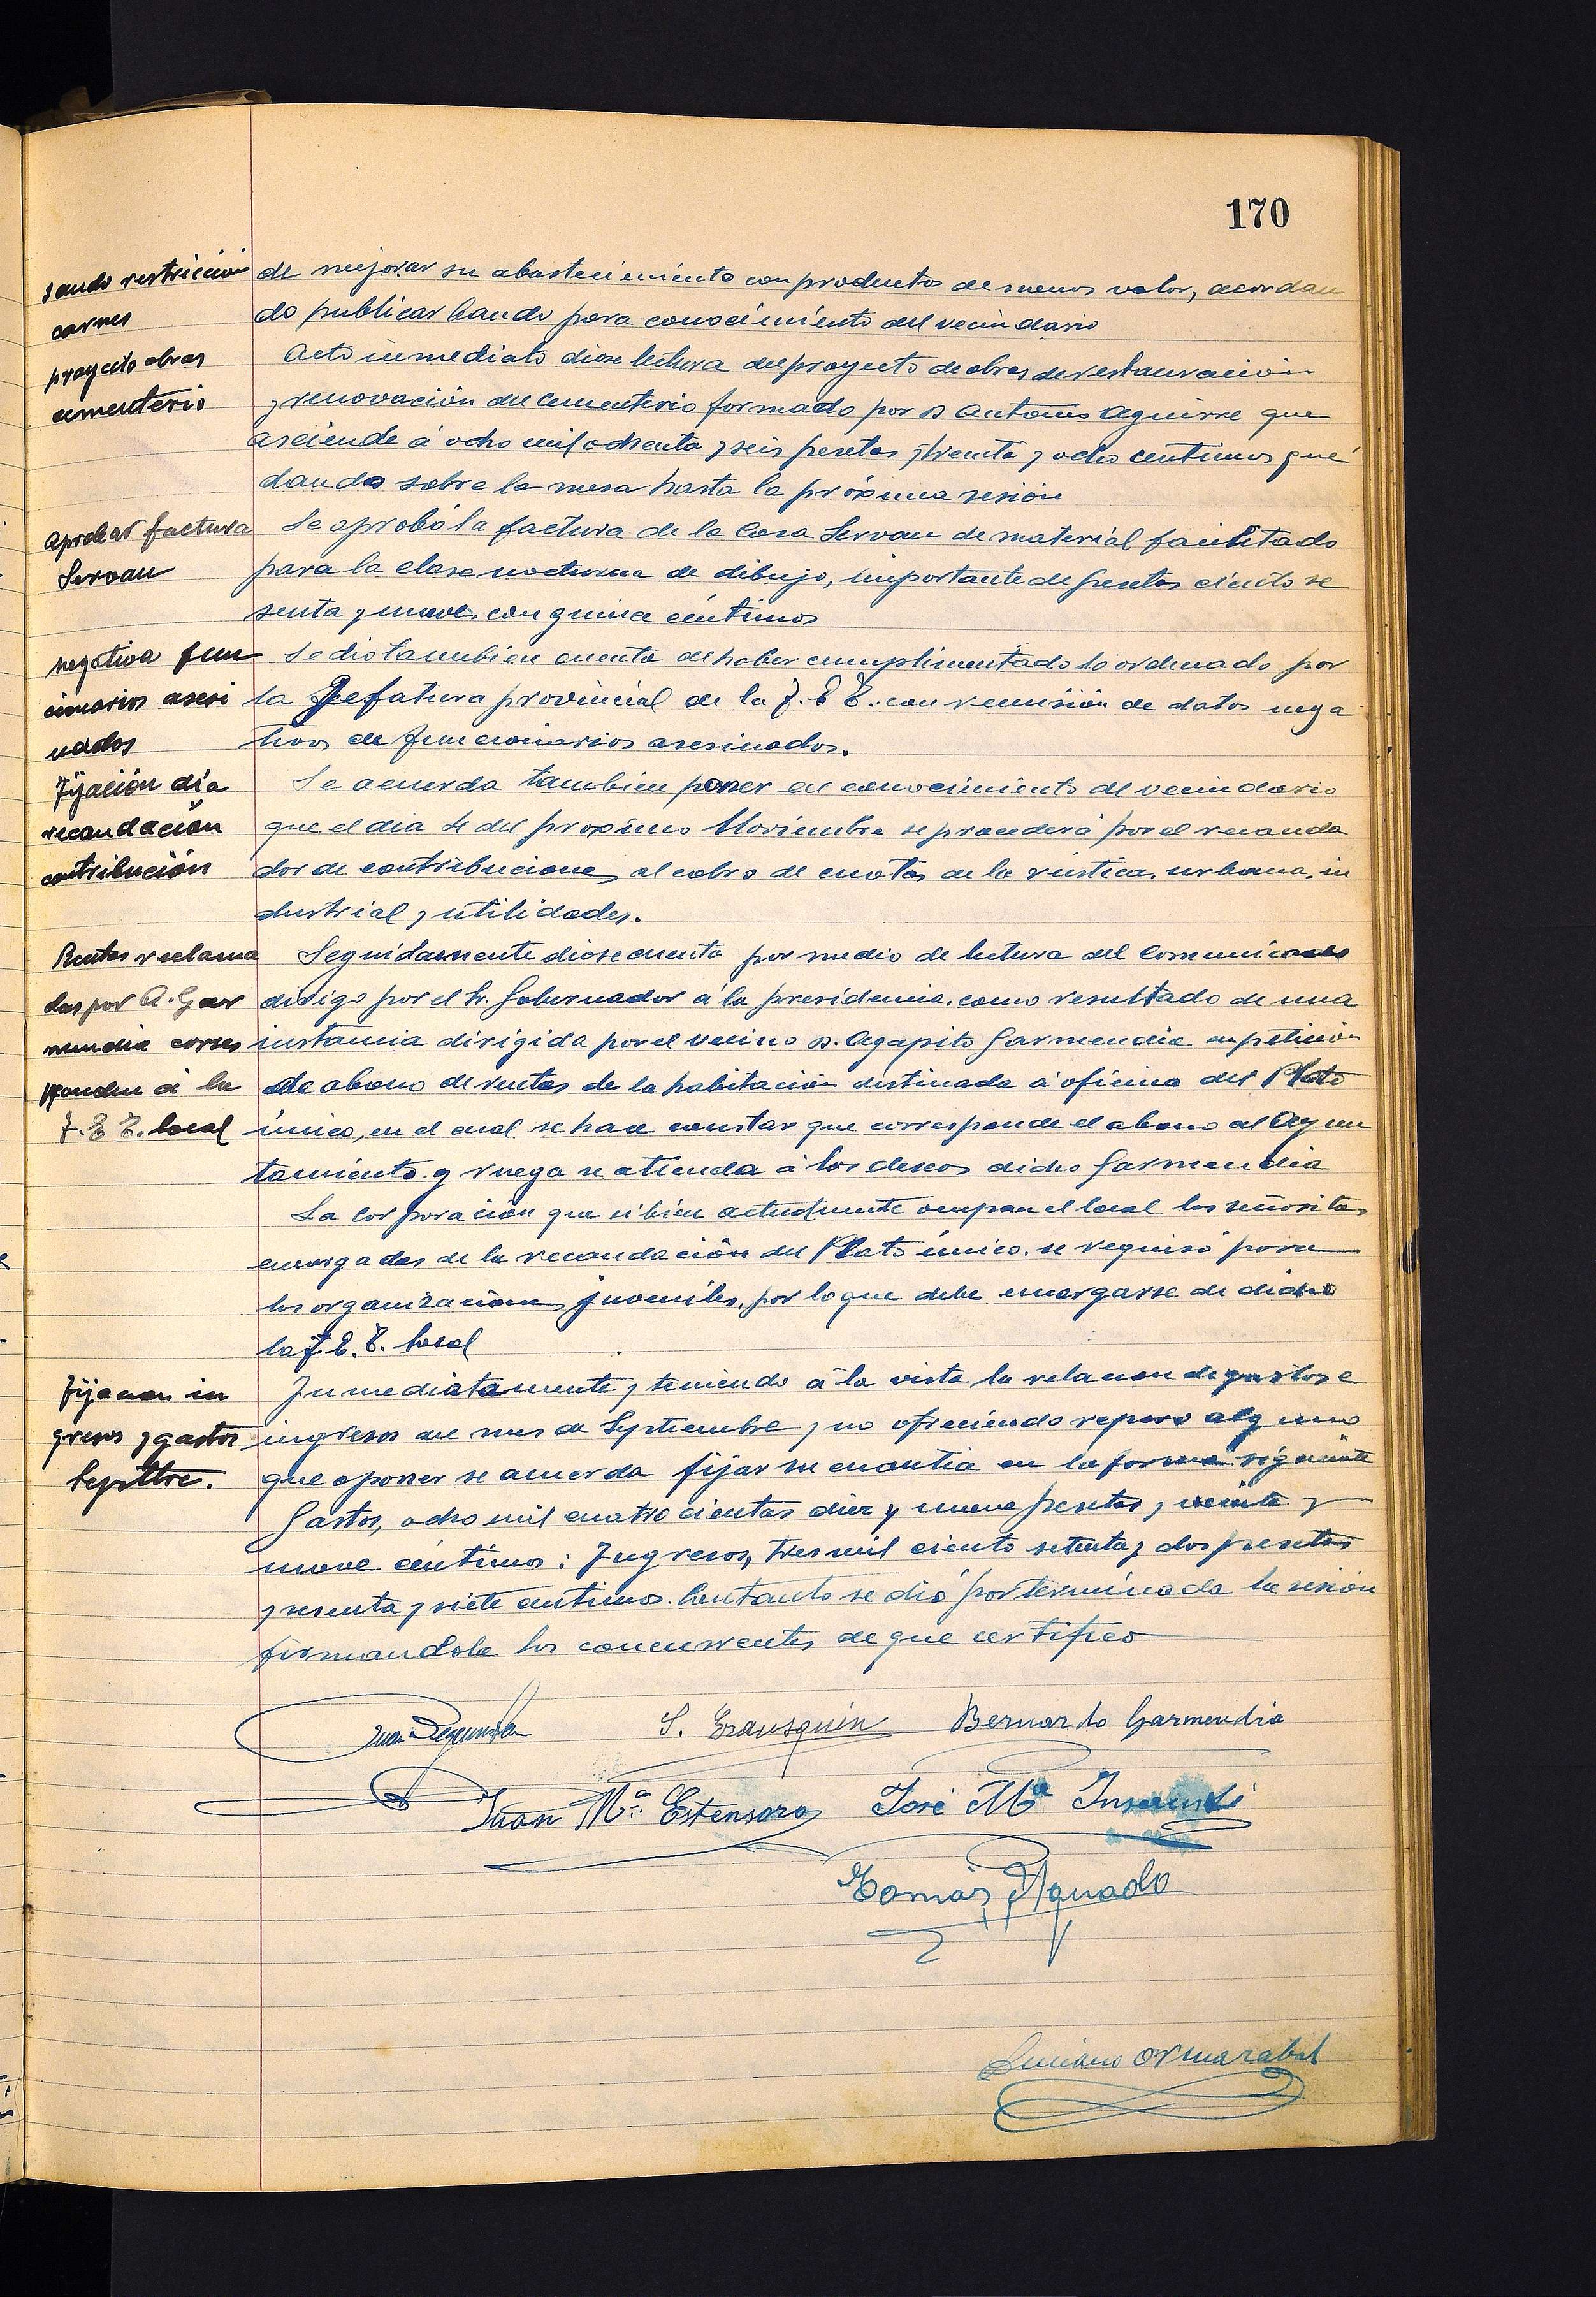 170
sando restriccion
carnes
de mejorar su abastecimiento con productos de menos valor, acordan
do publicar bando para conocimiento del vecindario
proyecto obras
cementerio
Acto inmediato diose lectura del proyecto de obras de restauración
y renovación del cementerio formado por D Antonio Aguirre que
asciende á ocho mil ochenta y seis pesetas y treinta y ocho centimos que
dando sobre la mesa hasta la próxima sesión
Aprobar factura
Servan
Se aprobó la factura de la Casa Servan de material facilitado
para la clase nocturna de dibujo, importante de pesetas ciento se
senta y nueve con quince céntimos
negativa fun
cionarios asesi
nados
Se dio tambien cuenta de haber cumplimentado lo ordenado por
la Jefatura provincial de la F. E T. con remisión de datos nega
tivos de funcionarios asesinados.
Fijación día
recaudación
contribución
Se acuerda tambien poner en conocimiento del vecindario
que el dia 4 del proximo Noviembre se procederá por el recauda
dor de contribuciones al cobro de cuotas de la rústica, urbana, in
dustrial y utilidades.
Rentas reclama
das por A. Gar
mendia corres
ponden á la
F. E T. local
Seguidamente diose cuenta por medio de lectura del Comunicado
dirigo por el Sr. Gobernador á la presidencia, como resultado de una
instancia dirigida por el vecino D. Agapito Garmendia en petición
de abono de rentas de la habitación destinada á oficina del Plato
único, en el cual se hace constar que corresponde el abono al Ayun
tamiento y ruega se atienda á los deseos dicho Garmendia
La Corporación que si bien actualmente ocupan el local las señoritas
encargadas de la recaudación del Plato único, se requisó para
las organizaciones juveniles, por lo que debe encargarse de dicho
la F. E. T. local
Fijacion in
gresos y gastos
Septtbre.
Inmediatamente y teniendo á la vista la relacion de gastos e
ingresos del mes de Septiembre y no ofreciendo reparo alguno
que oponer se acuerda fijar su cuantia en la forma siguiente
Gastos, ocho mil cuatrocientas diez y nueve pesetas y veinte y
nueve céntimos: Ingresos, tres mil ciento setenta y dos pesetas
y sesenta y siete centimos. Con tanto se dió por terminada la sesión
firmandola los concurrentes de que certifico
Juan S. Erausquin Bernardo Garmendia
Juan Mª. Estensoro José Mª Insausti
Tomás Aguado
Luciano Ormazabal